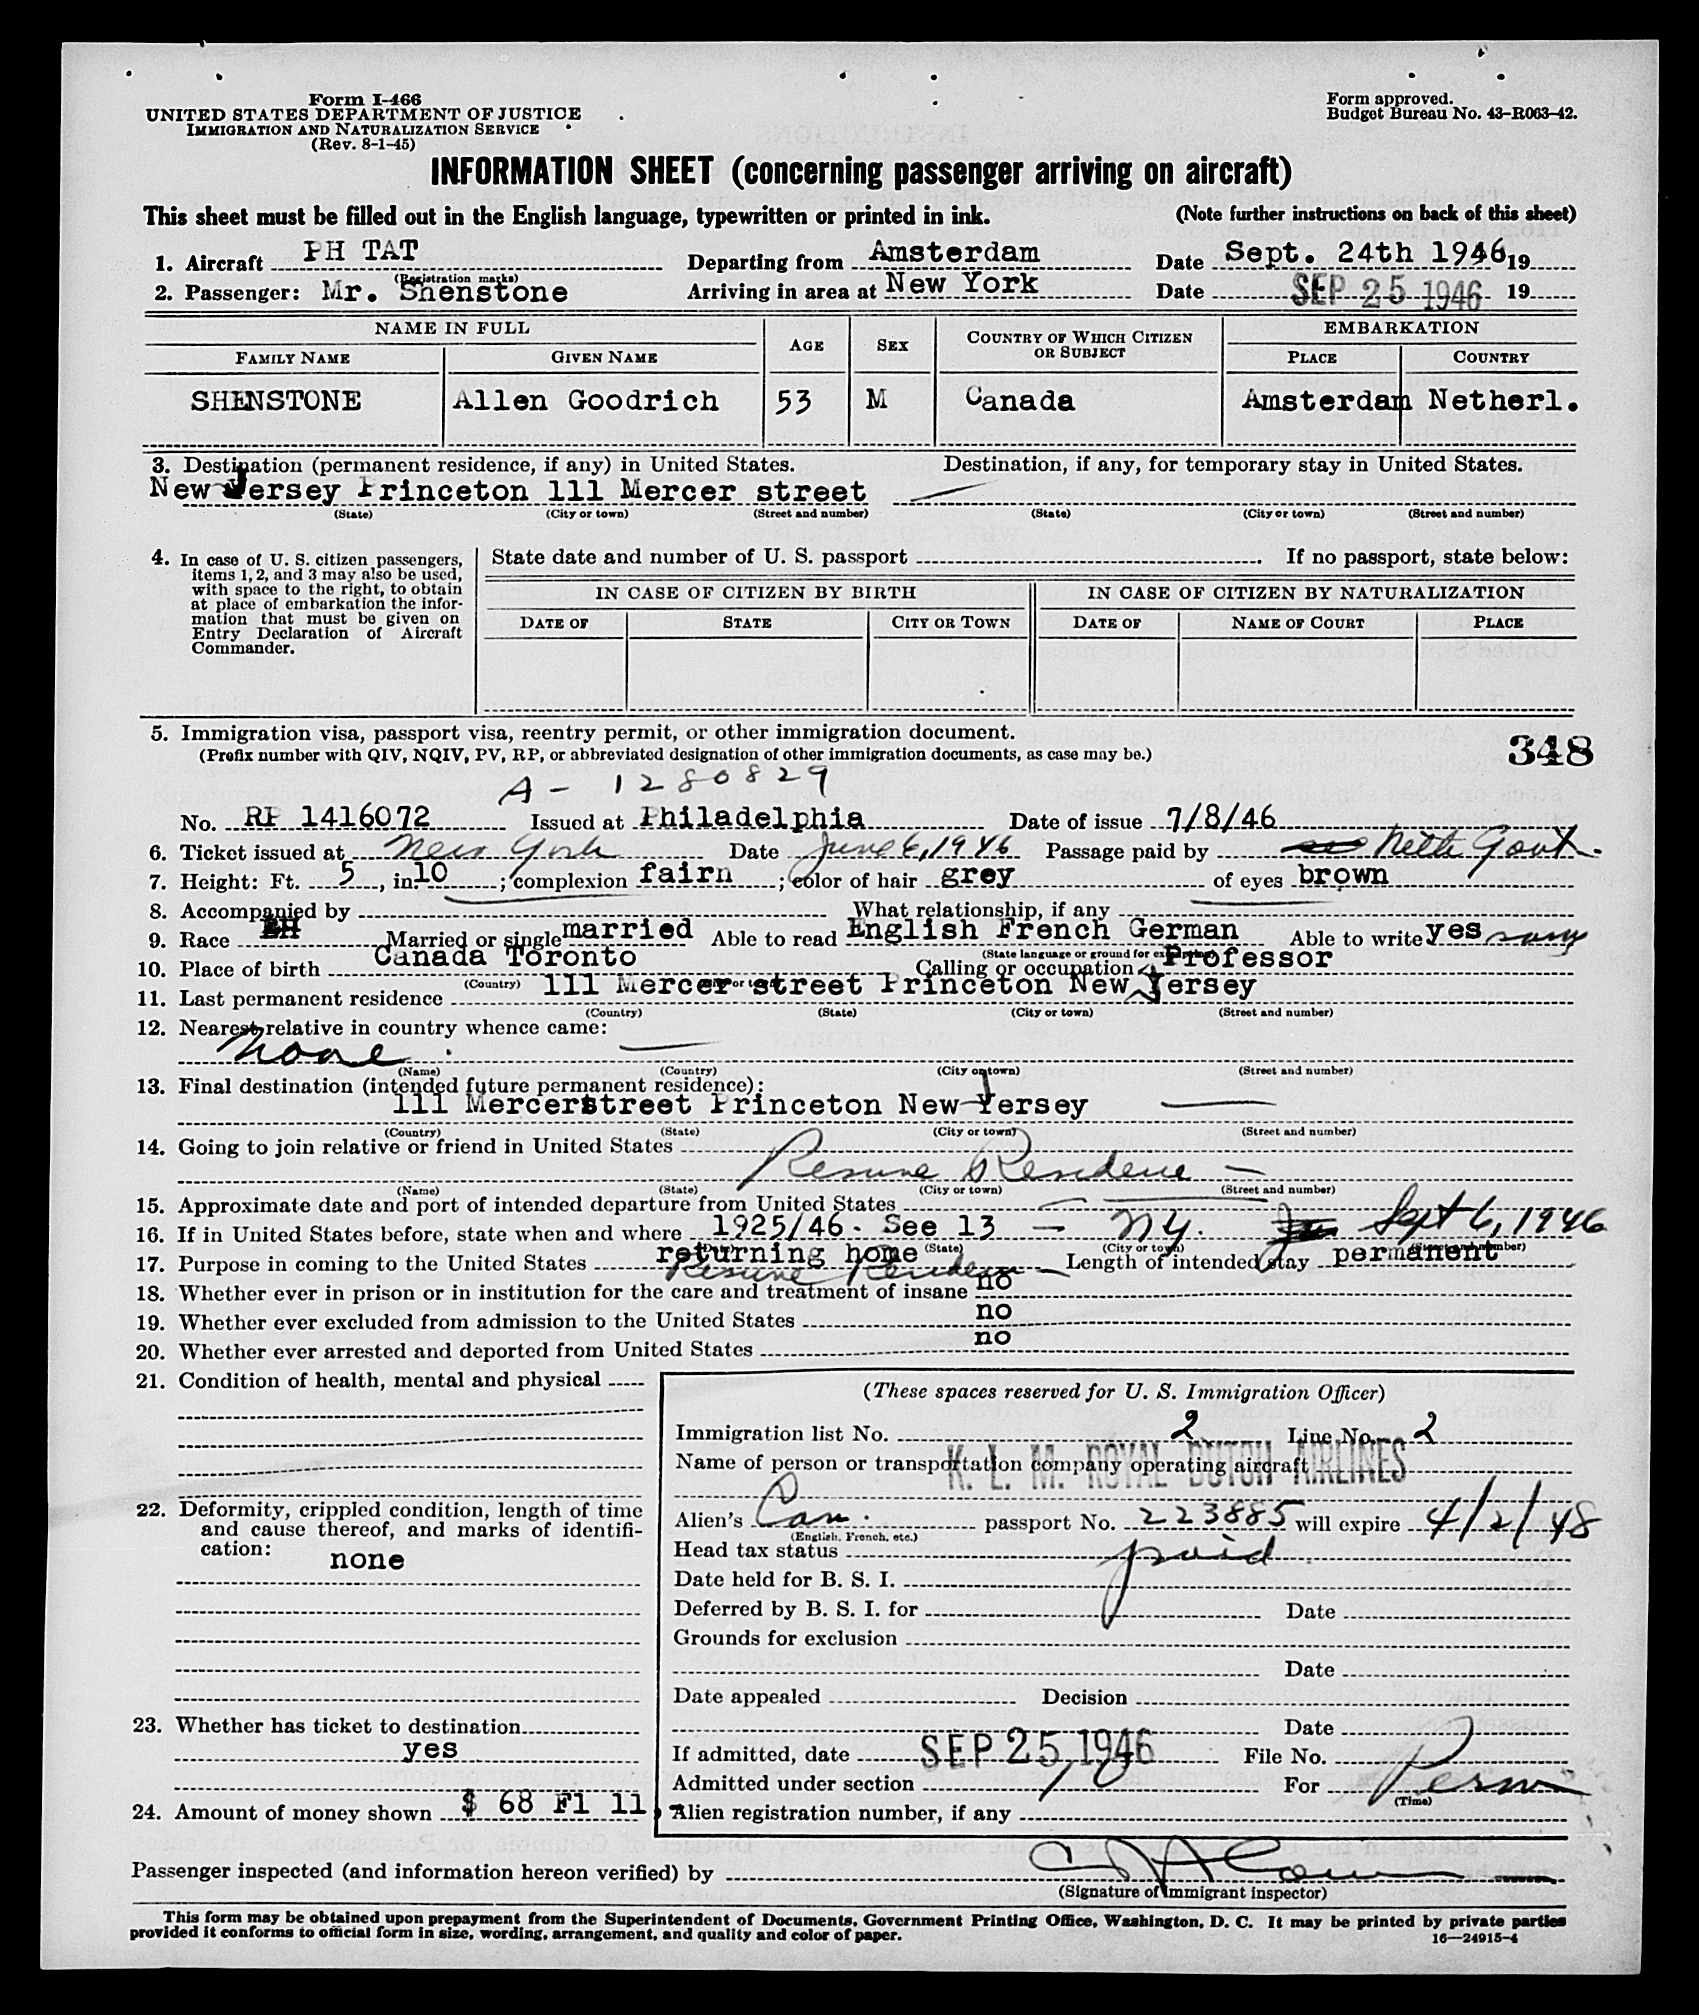 Form I-466
UNITED STATES DEPARTMENT OF JUSTICE
IMMIGRATION AND NATURALIZATION SERVICE
(Rev. 8-1-45)
Form approved.
Budget Bureau No. 43-R063-42.
INFORMATION SHEET (concerning passenger arriving on aircraft)
This sheet must be filled out in the English language, typewritten or printed in ink. (Note further instructions on back of this sheet)
1. Aircraft PH TAT Departing from Amsterdam Date Sept. 24th 1946 19
(Registration marks)
2. Passenger: Mr. Shenstone Arriving in area at New York Date SEP 25 1946 19
NAME IN FULL AGE SEX COUNTRY OF WHICH CITIZEN OR SUBJECT EMBARKATION
FAMILY NAME GIVEN NAME PLACE COUNTRY
SHENSTONE Allen Goodrich 53 M Canada Amsterdam Netherl.
3. Destination (permanent residence, if any) in United States. Destination, if any, for temporary stay in United States.
New Jersey Princeton 111 Mercer street —
(State) (City or town) (Street and number) (State) (City or town) (Street and number)
4. In case of U. S. citizen passengers, items 1, 2, and 3 may also be used, with space to the right, to obtain at place of embarkation the information that must be given on Entry Declaration of Aircraft Commander.
State date and number of U. S. passport . If no passport, state below:
IN CASE OF CITIZEN BY BIRTH IN CASE OF CITIZEN BY NATURALIZATION
DATE OF STATE CITY OR TOWN DATE OF NAME OF COURT PLACE
5. Immigration visa, passport visa, reentry permit, or other immigration document.
(Prefix number with QIV, NQIV, PV, RP, or abbreviated designation of other immigration documents, as case may be.)
348
A - 1280829
No. RP 1416072 Issued at Philadelphia Date of issue 7/8/46
6. Ticket issued at New York Date June 6, 1946 Passage paid by Neth Govt.
7. Height: Ft. 5, in. 10; complexion fairn; color of hair grey of eyes brown
8. Accompanied by What relationship, if any
9. Race Married or single married Able to read English French German Able to write yes same
(State language or ground for exemption)
10. Place of birth Canada Toronto Calling or occupation Professor
(Country) (City or town)
11. Last permanent residence 111 Mercer street Princeton New Jersey
(Country) (State) (City or town) (Street and number)
12. Nearest relative in country whence came:
None —
(Name) (Country) (City or town) (Street and number)
13. Final destination (intended future permanent residence):
111 Mercerstreet Princeton New Jersey —
(Country) (State) (City or town) (Street and number)
14. Going to join relative or friend in United States
Resume Residence —
(Name) (State) (City or town) (Street and number)
15. Approximate date and port of intended departure from United States —
16. If in United States before, state when and where 1925/46. See 13 — NY. Sept 6, 1946
(State) (City or town) (Street and number)
17. Purpose in coming to the United States returning home Length of intended stay permanent
Resume Residence —
18. Whether ever in prison or in institution for the care and treatment of insane no
19. Whether ever excluded from admission to the United States no
20. Whether ever arrested and deported from United States no
21. Condition of health, mental and physical
22. Deformity, crippled condition, length of time and cause thereof, and marks of identification:
none
23. Whether has ticket to destination
yes
24. Amount of money shown $ 68 Fl 11,-
(These spaces reserved for U. S. Immigration Officer)
Immigration list No. 2 Line No. 2
Name of person or transportation company operating aircraft
K. L. M. ROYAL DUTCH AIRLINES
Alien's Can. passport No. 223885 will expire 4/2/48
(English, French, etc.)
Head tax status paid
Date held for B. S. I.
Deferred by B. S. I. for Date
Grounds for exclusion
Date
Date appealed Decision
Date
If admitted, date SEP 25 1946 File No.
Admitted under section For Perm
(Time)
Alien registration number, if any
Passenger inspected (and information hereon verified) by
(Signature of Immigrant inspector)
This form may be obtained upon prepayment from the Superintendent of Documents, Government Printing Office, Washington, D. C. It may be printed by private parties
provided it conforms to official form in size, wording, arrangement, and quality and color of paper.
16—24915-4